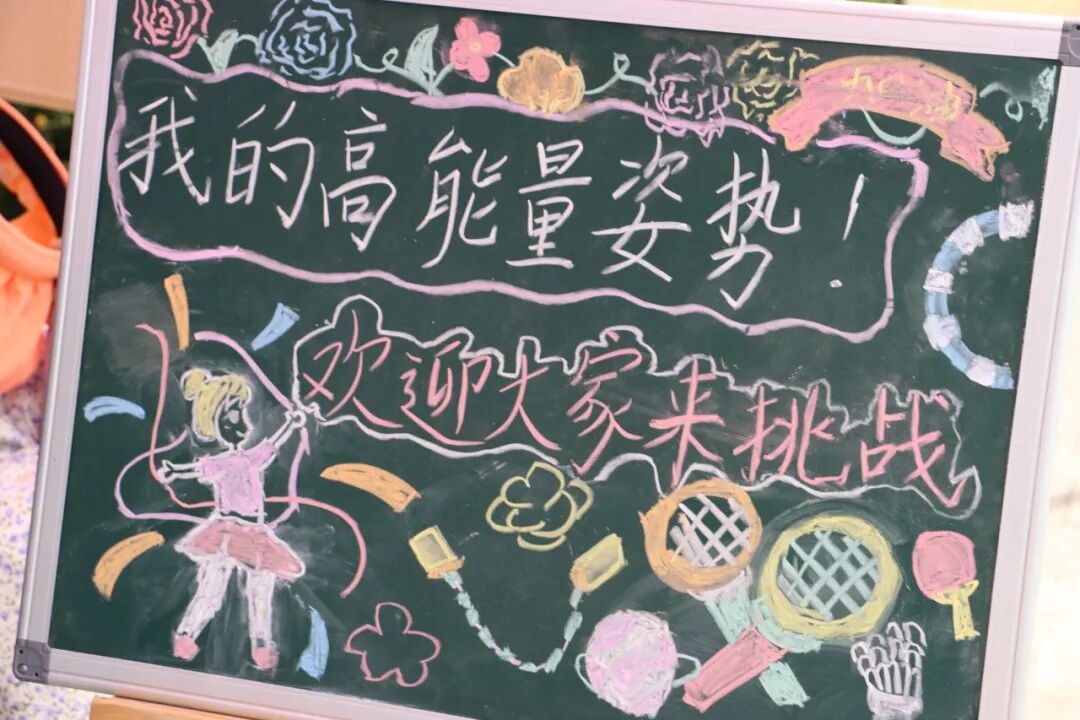 加油
我的高能量姿势！
欢迎大家来挑战